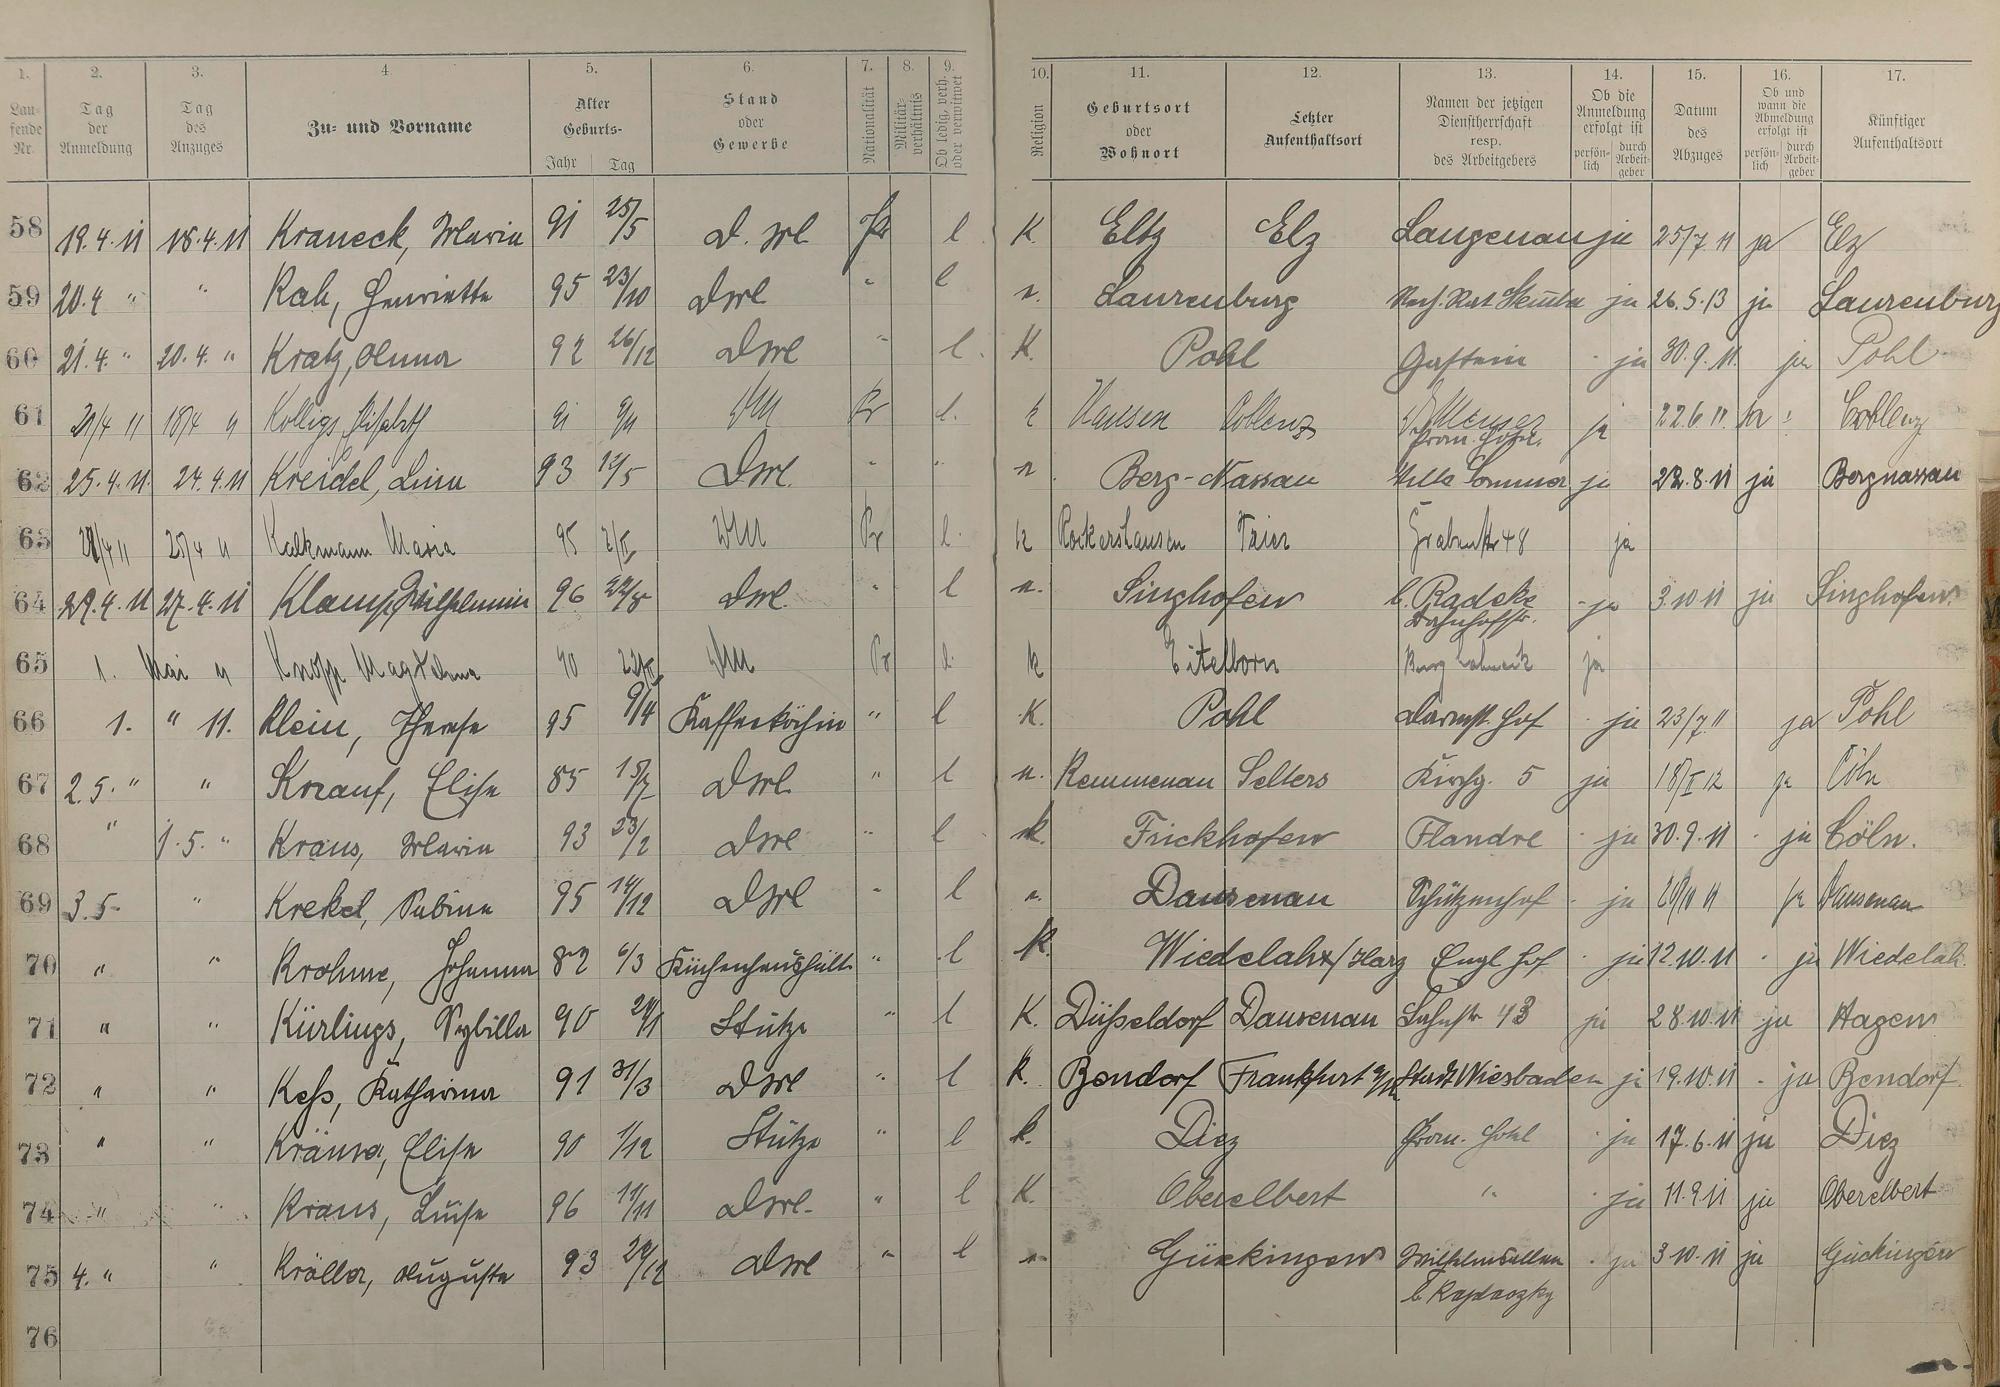 1. 2. 3. 4. 5. 6. 7. 8. 9. 10. 11. 12. 13. 14. 15. 16. 17.
Laufende Nr. Tag der Anmeldung Tag des Anzuges Zu- und Vorname Alter Geburts- Jahr Tag Stand oder Gewerbe Nationalität Militärverhältnis Ob ledig, verh. oder verwitwet Religion Geburtsort oder Wohnort Letzter Aufenthaltsort Namen der jetzigen Dienstherrschaft resp. des Arbeitgebers Ob die Anmeldung erfolgt ist persönlich durch Arbeitgeber Datum des Abzuges Ob und wann die Abmeldung erfolgt ist persönlich durch Arbeitgeber Künftiger Aufenthaltsort
58 19.4.11 18.4.11 Kraneck, Maria 91 25/5 D. Ml. Pr l K. Eltz Elz Langenau ja 25/7 11 ja Elz
59 20.4 " " Rah, Henriette 95 23/10 Dml " l n. Laurenburg ja 26.5.13 ja Laurenburg
60 21.4. " 20.4. " Kratz, Anna 92 26/12 Dml " l. K. Pohl - ja 30.9.11. ja Pohl
61 11 18/4 11 Kolligs, 91 9/11 Pr l. k Hausen Coblenz ja 22.6.11. Coblenz
62 25.4.11. 24.4.11 Kreidel, Lina 93 12/5 Dml. " " n. Berg-Nassau Villa Sommer ja 22.8.11 ja Bergnassau
63 11 25/4 11 Kalkmann Maria 95 Pr l. k Rockershausen Trier Grabenstr 48 ja
64 29.4.11 27.4.11 Klamp, Wilhelmine 96 22/8 Dml. " l n. Singhofen b. Radeke - ja 3.10.11 ja Singhofen
Bahnhofstr.
65 1. Mai 11 Knopp Magdalena 90 Pr l. k Eitelborn Burg Lahneck ja
66 1. " 11. Klein, Therese 95 9/4 Kaffeeköchin " l K. Pohl Darmst. Hof - ja 23/7.11 ja Pohl
67 2.5. " " Knauf, Elise 85 15/7 Dml. " l n. Kemmenau Selters Kirchg. 5 ja 12 ja Cöln
68 " 1.5. " Kraus, Maria 93 23/2 Dml " l k. Frickhofen Flandre - ja 30.9.11 - ja Cöln.
69 3.5- " Krekel, Sabine 95 14/12 Dml " l n. Dausenau Schützenhof - ja 11 ja Dausenau
70 " " Krohme, Johanna 82 6/3 Küchenhaushält. " l K. Wiedelah/Harz Engl. Hof - ja 12.10.11 - ja Wiedelah.
71 " " Kürlings, Sybilla 90 Stütze " l K. Düsseldorf Dausenau Lahnstr. 43 ja 28.10.11 ja Hagen
72 " " Keß, Katharina 91 31/3 Dml " l k. Bendorf Frankfurt a/M. Stadt Wiesbaden ja 19.10.11 - ja Bendorf.
73 " " Elise 90 1/12 Stütze " l k. Diez Prom. Hotel - ja 17.6.11 ja Diez
74 " " Kraus, Luise 96 11/11 Dml. " l K. Oberelbert " - ja 11.9.11 ja Oberelbert
75 4. " " Kröller, Auguste 93 Dml " l n. Gückingen Wilhelmsallee - ja 3.10.11 ja Gückingen
76